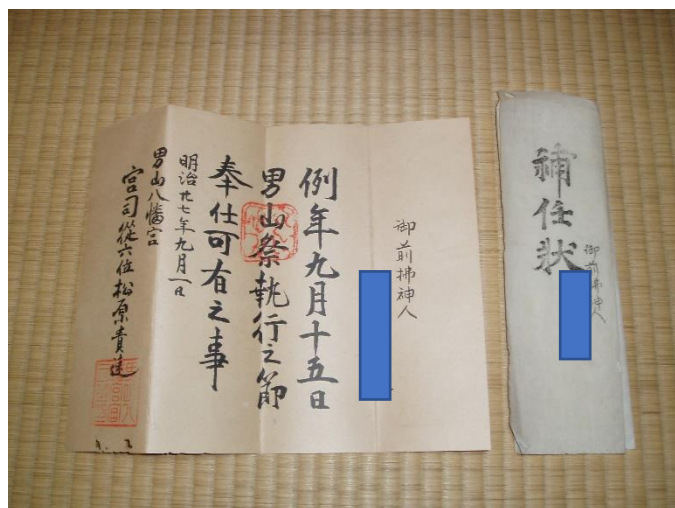 補任状
御前拂神人
御前拂神人
例年九月十五日
男山祭執行之節
奉仕可有之事
明治廿七年九月一日
男山八幡宮
宮司從六位松原貴速